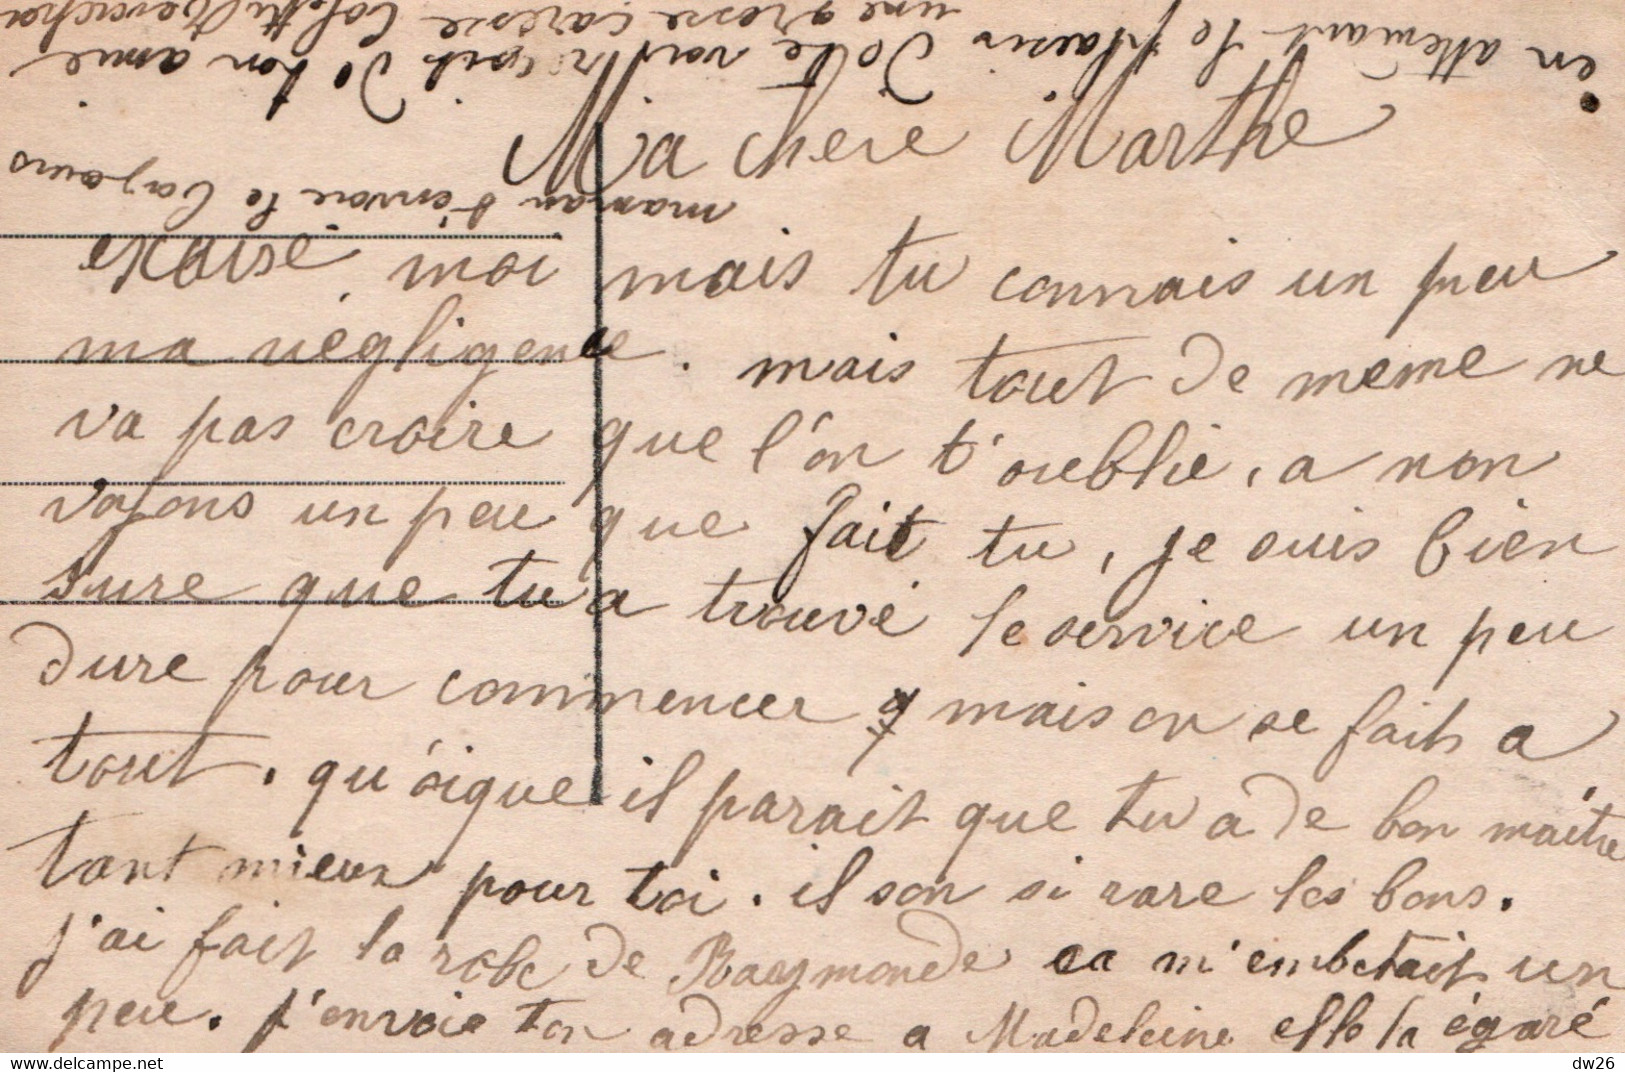 Ma chere Marthe
exuise moi mais tu connais un peu
ma négligence. mais tout de meme ne
va pas croire que l'on t'oublie, a non
voyons un peu que fait tu, je suis bien
sure que tu a trouvé le service un peu
dure pour commencer mais on se fait a
tout. qu'oique il parait que tu a de bon maitre
tant mieux pour toi. il son si rare les bons.
j'ai fait la robe de Raymonde ca m'embetait un
peu. j'envoie ton adresse a Madeleine elle la égaré
maman t'envoie le
en attendant le plaisir de te voir reçois de ton amie
une grosse caresse
dw26